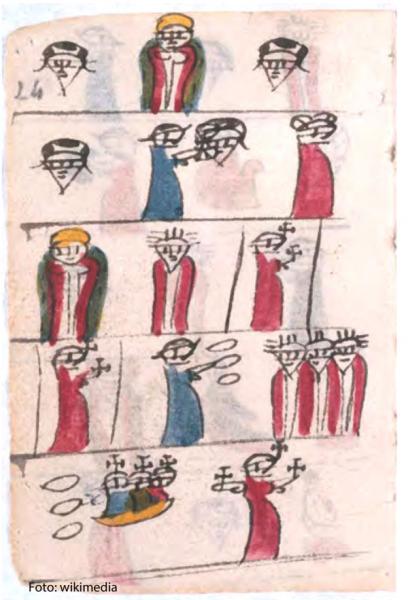 24
Foto: wikimedia